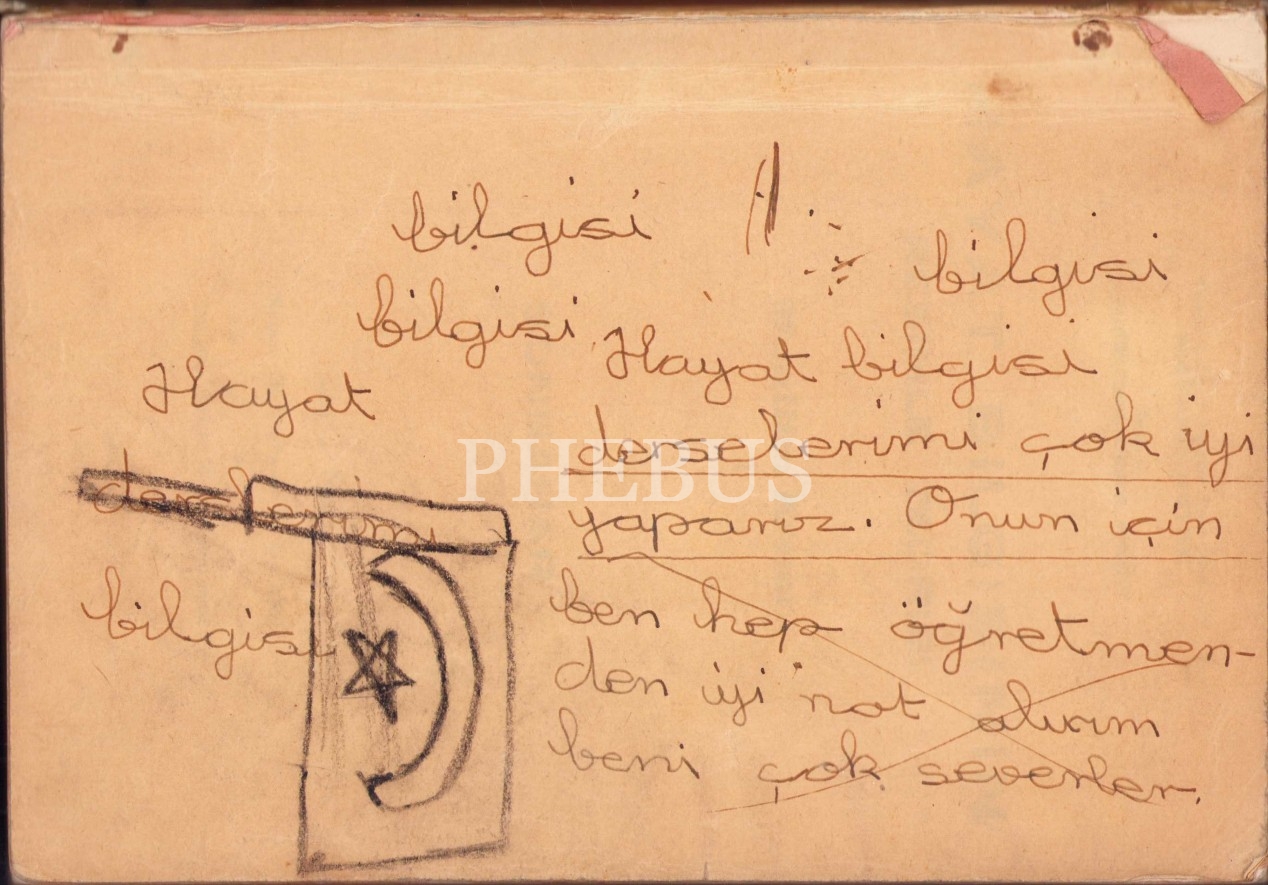 bilgisi
bilgisi
bilgisi
Hayat bilgisi
Hayat
derselerimi çok iyi
PHEBUS
derslerimi
yaparız. Onun için
bilgisi
ben hep öğretmen-
den iyi not alırım
beni çok severler.